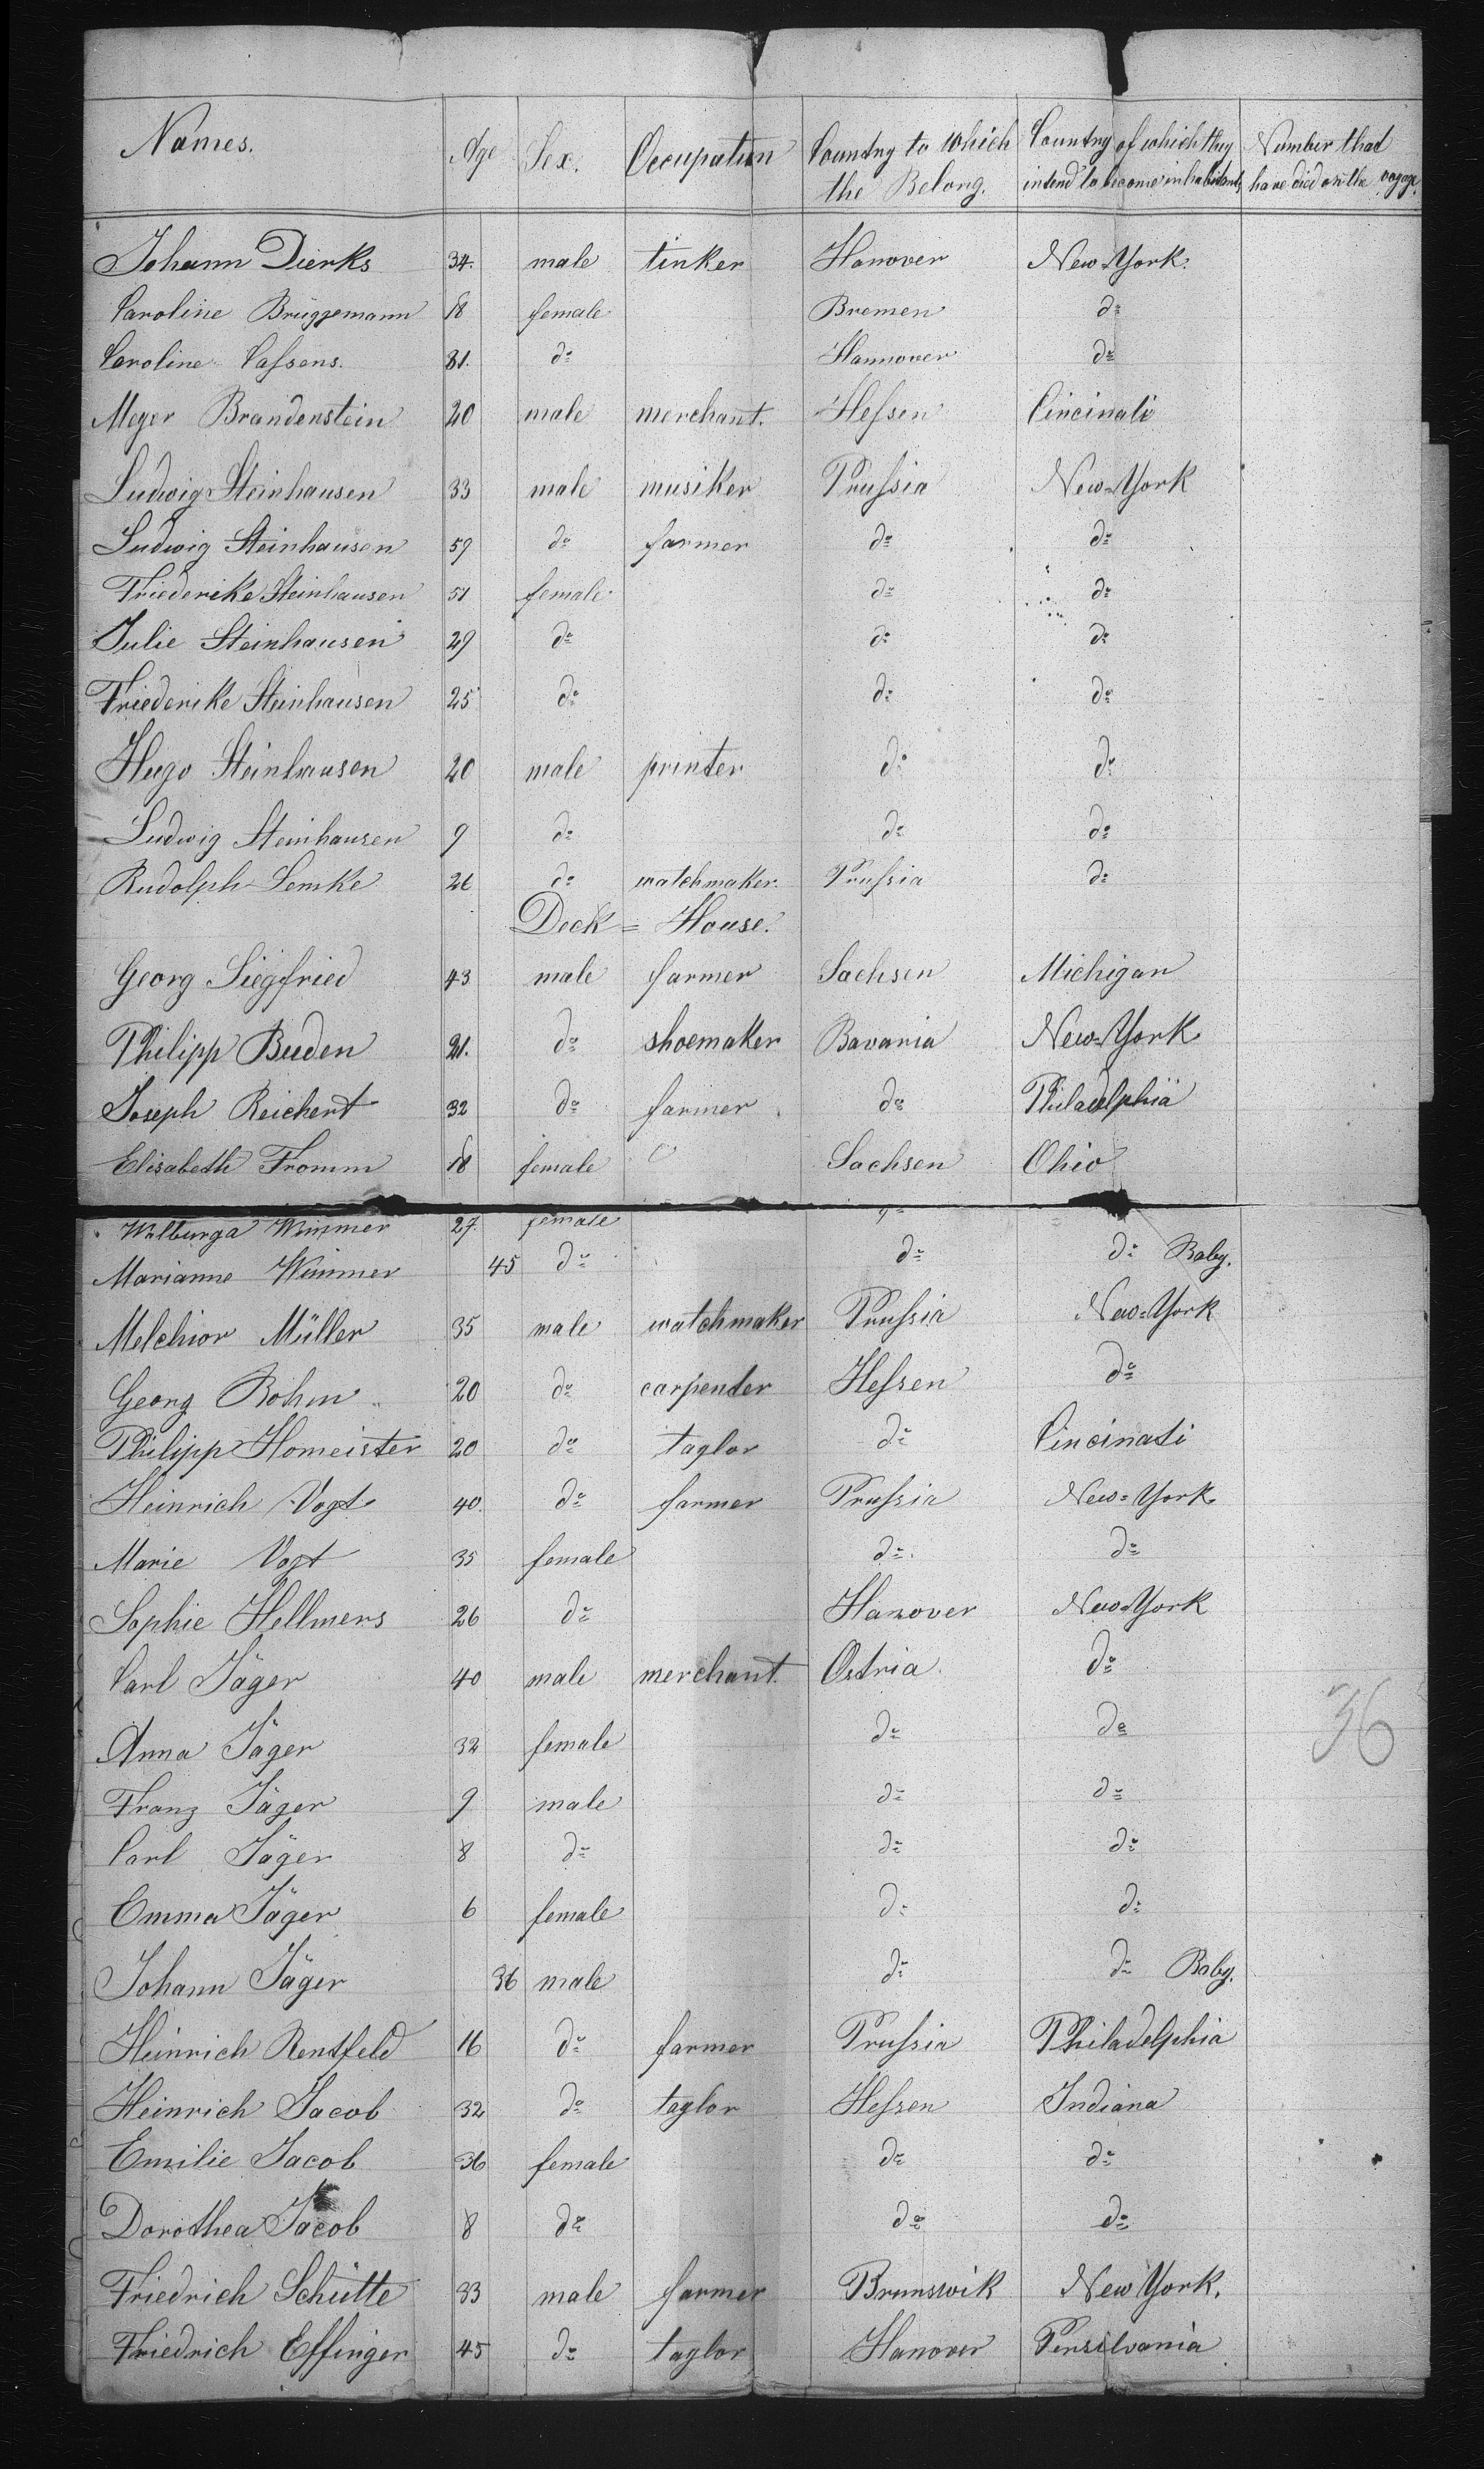 Names. Age Sex. Occupation Country to which the Belong. Country of which they intend to become inhabitants Number that have died on the voyage.
Johann Dierks 34. male tinker Hanover New-York.
Caroline Brüggemann 18 female Bremen do
Caroline Cassens. 31. do Hannover do
Meyer Brandenstein 20 male merchant. Hessen Cincinati
Ludwig Steinhausen 33 male musiker Prussia New-York
Ludwig Steinhausen 59 do farmer do do
Friederike Steinhausen 51 female do do
Julie Steinhausen 29 do do do
Friederike Steinhausen 25 do do do
Hugo Steinhausen 20 male printer do do
Ludwig Steinhausen 9 do do do
Rudolph Lemke 26 do watchmaker. Prussia do
Deck = House.
Georg Siegfried 43 male farmer Sachsen Michigan
Philipp Buden 21. do shoemaker Bavaria New-York
Joseph Reichert 32 do farmer do Philadelphia
Elisabeth Fromm 18 female Sachsen Ohio
Walburga Wimmer 27. female do
Marianne Wimmer 45 do do do Baby.
Melchior Müller 35 male watchmaker Prussia New-York
Georg Bohm 20 do carpenter Hessen do
Philipp Homeister 20 do taylor do Cincinati
Heinrich Vogt 40 do farmer Prussia New-York
Marie Vogt 35 female do do
Sophie Hellmers 26 do Hanover New-York
Carl Jäger 40 male merchant. Ostria do
Anna Jäger 32 female do do
Franz Jäger 9 male do do
Carl Jäger 8 do do do
Emma Jäger 6 female do do
Johann Jäger 36 male do do Baby.
36
Heinrich Rentfeld 16 do farmer Prussia Philadelphia
Heinrich Jacob 32 do taylor Hessen Indiana
Emilie Jacob 36 female do do
Dorothea Jacob 8 do do do
Friedrich Schütte 33 male farmer Brunswik New York.
Friedrich Effinger 45 do taylor Hanover Pensilvania